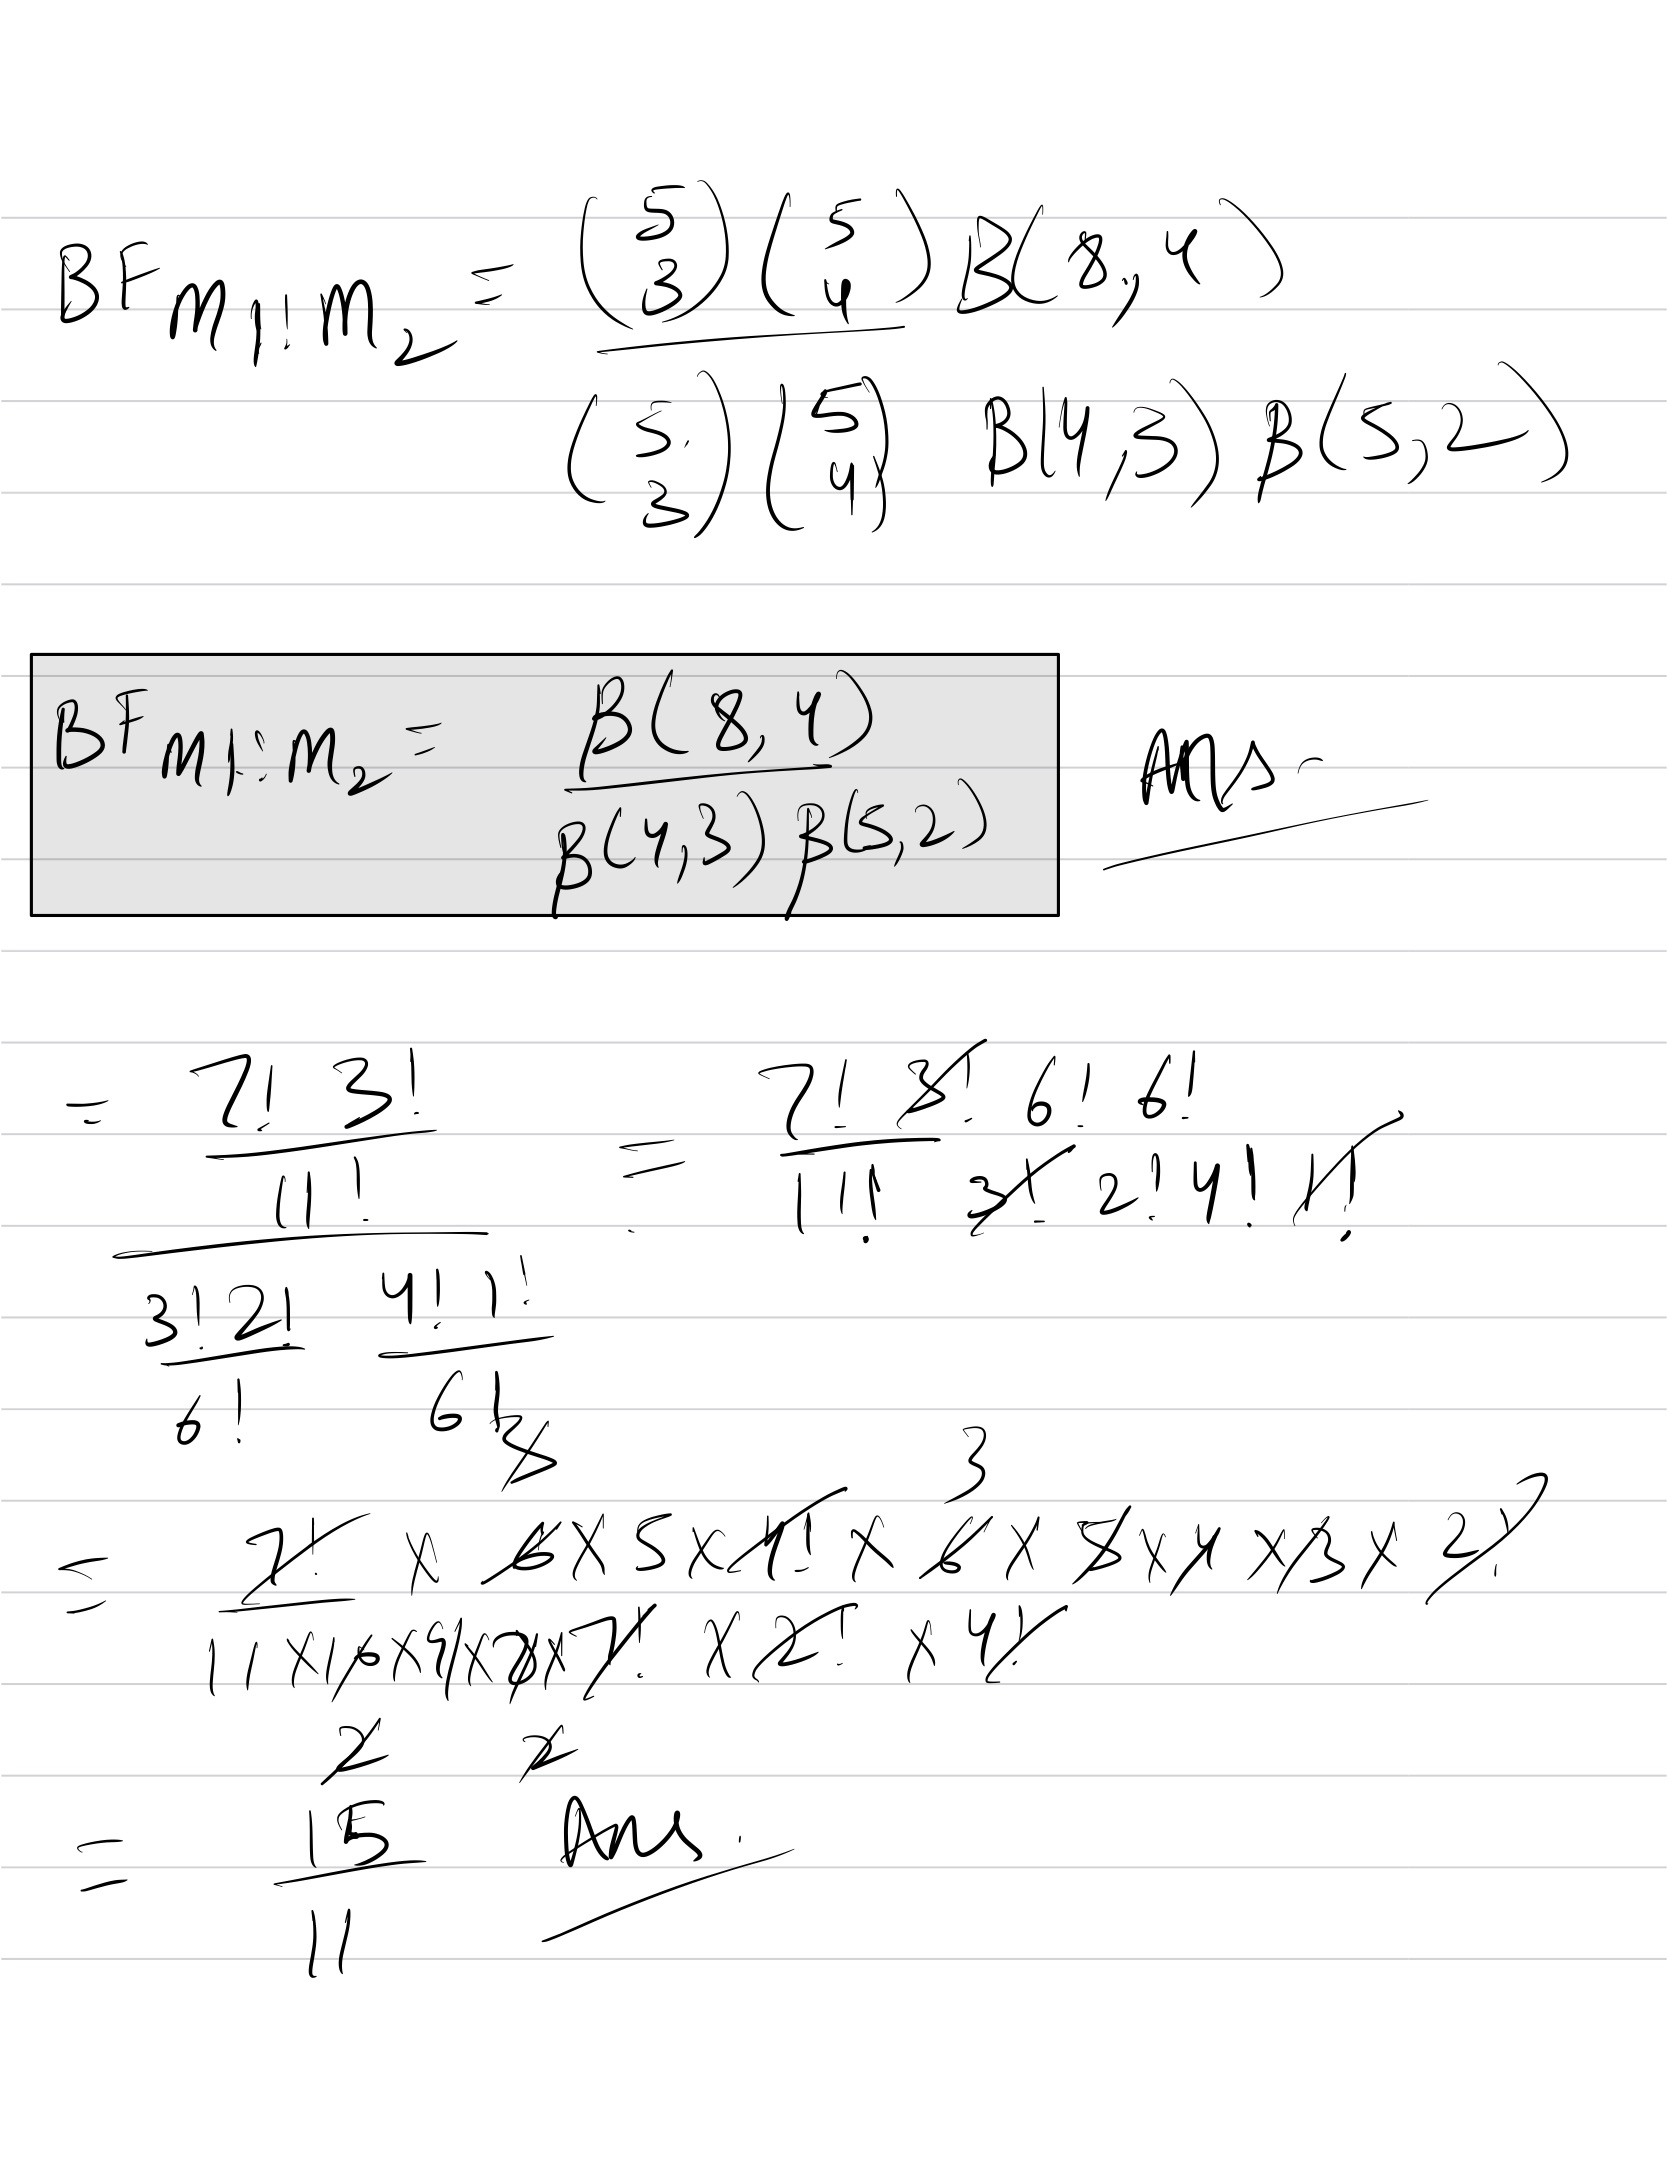 BF_{M_1:M_2} = \frac{\binom{5}{3}\binom{5}{4} B(8,4)}{\binom{5}{3}\binom{5}{4} B(4,3) B(5,2)}
BF_{M_1:M_2} = \frac{B(8,4)}{B(4,3) B(5,2)} Ans.
= \frac{\frac{7! 3!}{11!}}{\frac{3! 2!}{6!} \frac{4! 1!}{6!}} = \frac{7! 3! 6! 6!}{11! 3! 2! 4! 1!}
3 3
= \frac{7! × 6 × 5 × 4! × 6 × 5 × 4 × 3 × 2!}{11 × 10 × 9 × 8 × 7! × 2! × 4!}
2 2
= \frac{15}{11} Ans.